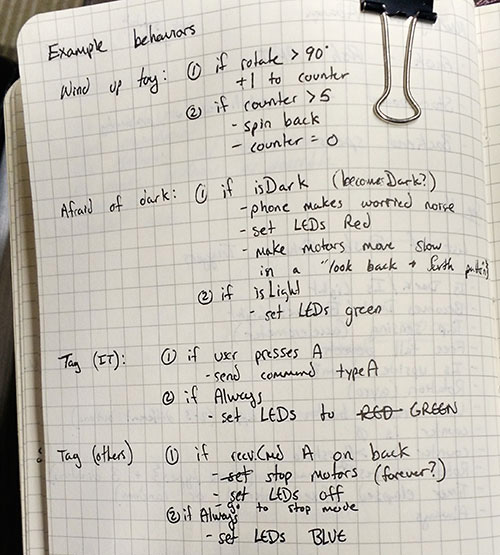 Example behaviors
Wind up toy: ① if rotate > 90°
+1 to counter
② if counter > 5
- spin back
- counter = 0
Afraid of dark: ① if isDark (becomeDark?)
- phone makes worried noise
- set LEDs Red
- make motors move slow
in a "look back + forth pattern"
② if isLight
- set LEDs green
Tag (IT): ① if user presses A
- send command typeA
② if Always
- set LEDs to RED GREEN
Tag (others) ① if recv.Cmd A on back
- set stop motors (forever?)
- set LEDs off
- go to stop mode
② if Always
- set LEDs BLUE